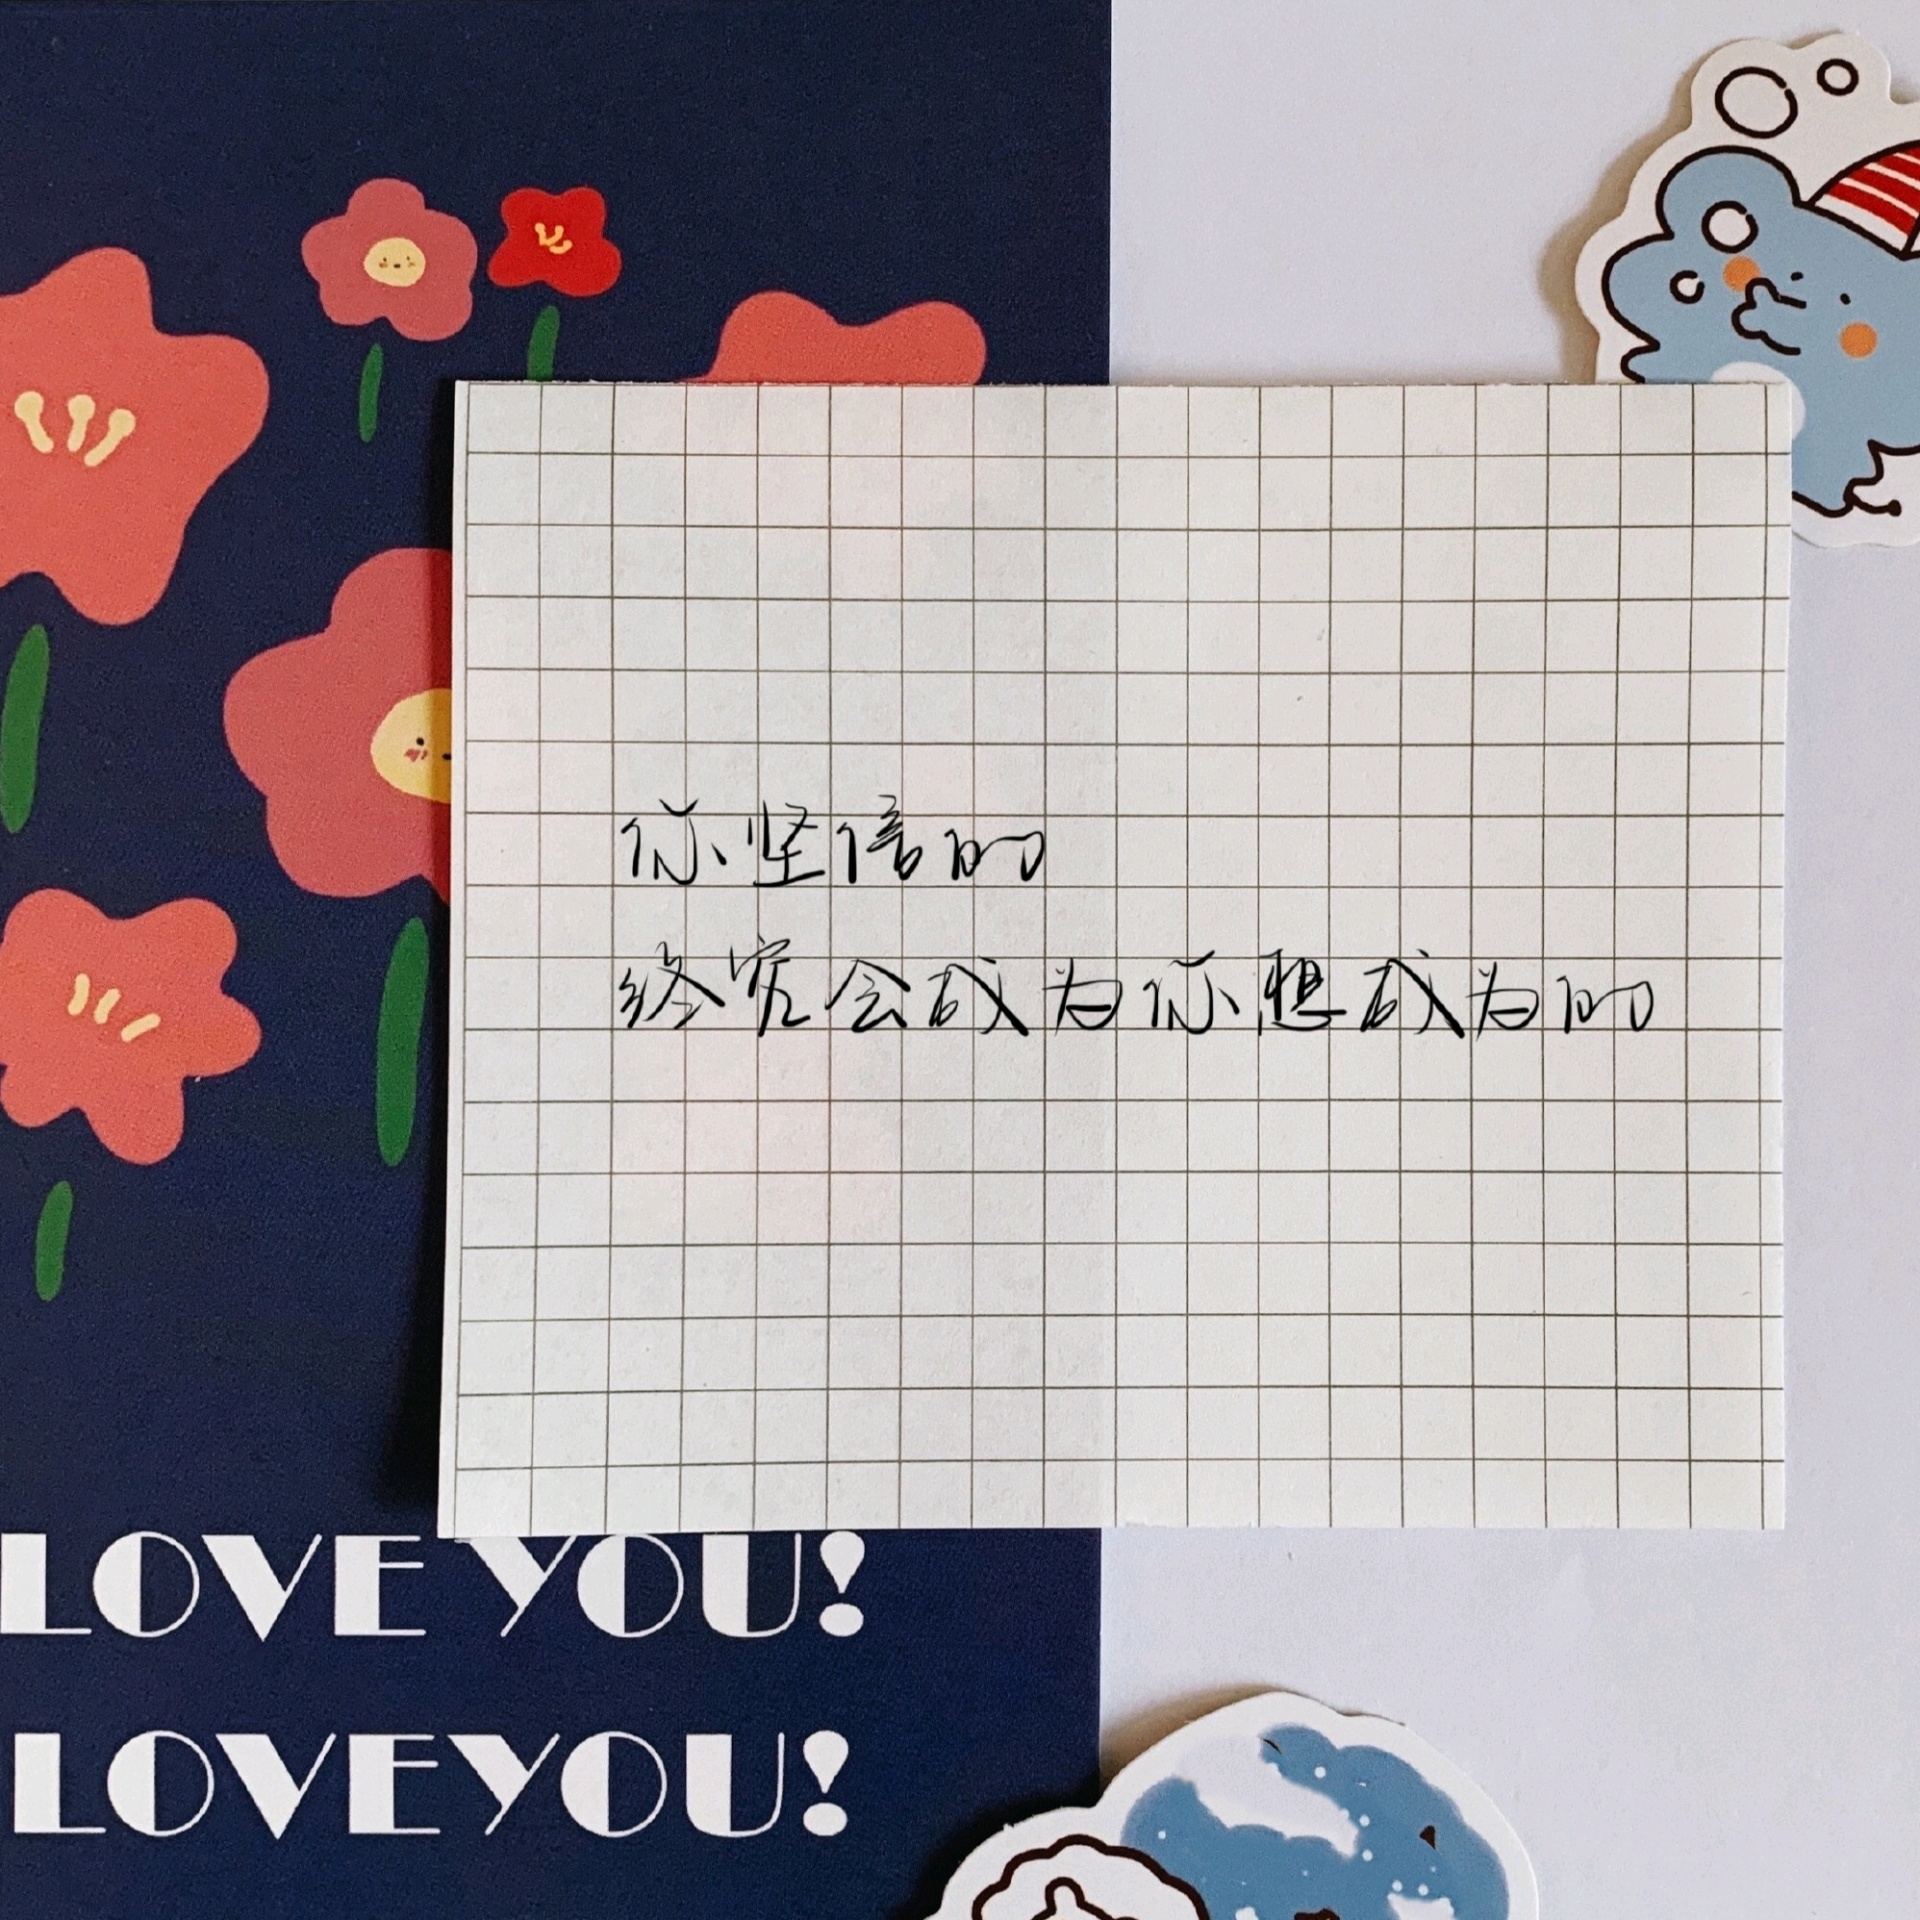 你坚信的
终究会成为你想成为的
LOVE YOU!
LOVE YOU!